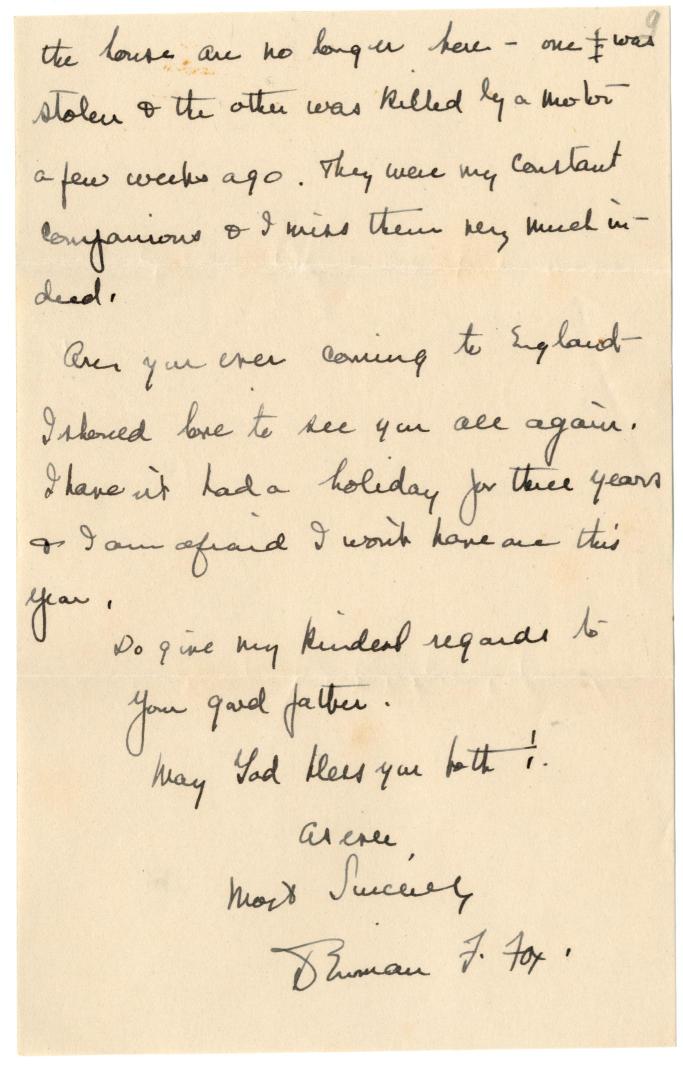 9
the house are no longer here - one was
stolen & the other was killed by a motor
a few weeks ago. They were my constant
companions & I miss them very much in-
deed.
Are you ever coming to England
I should love to see you all again.
I have n't had a holiday for three years
& I am afraid I won't have one this
year.
Do give my kindest regards to
your good father.
May God bless you both!.
As ever,
Most Sincerely
F. Fox.